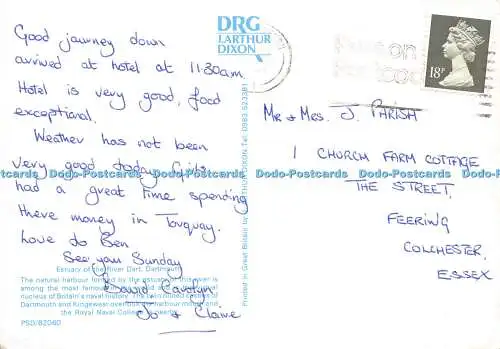 Good journey down
arrived at hotel at 11:30am.
Hotel is very good, food
exceptional.
Weather has not been
very good today. Girls
had a great time spending
there money in Torquay.
Love to Ben
See you Sunday
David Carolyn
Jo + Claire
DRG
LARTHUR
DIXON
Mr & Mrs. J. PARISH
1 CHURCH FARM COTTAGE
THE STREET,
FEERING
COLCHESTER.
ESSEX
18P
Printed in Great Britain by
DIXON Tel: 0983 523381
Dodo-Postcards Dodo-Postcards Dodo-Postcards Dodo-Postcards
Estuary of the River Dart, Dartmouth
The natural harbour formed by the estuary of this river is
among the most famous
nucleus of Britain's naval history. The twin towns castles of
Dartmouth and Kingswear overlook the harbour mouth and
the Royal Naval College
PSD/82060